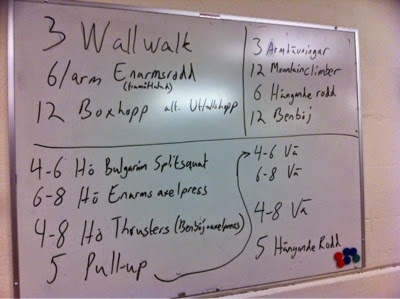 3 Wallwalk
6/arm Enarmsrodd
(framåtlutad)
12 Boxhopp alt. Utfallshopp
3 Armhävningar
12 Mountainclimber
6 Hängande rodd
12 Benböj
4-6 Hö Bulgarian Splitsquat
6-8 Hö Enarms axelpress
4-8 Hö Thrusters (Benböj+axelpress)
5 Pull-up
4-6 Vä
6-8 Vä
4-8 Vä
5 Hängande Rodd